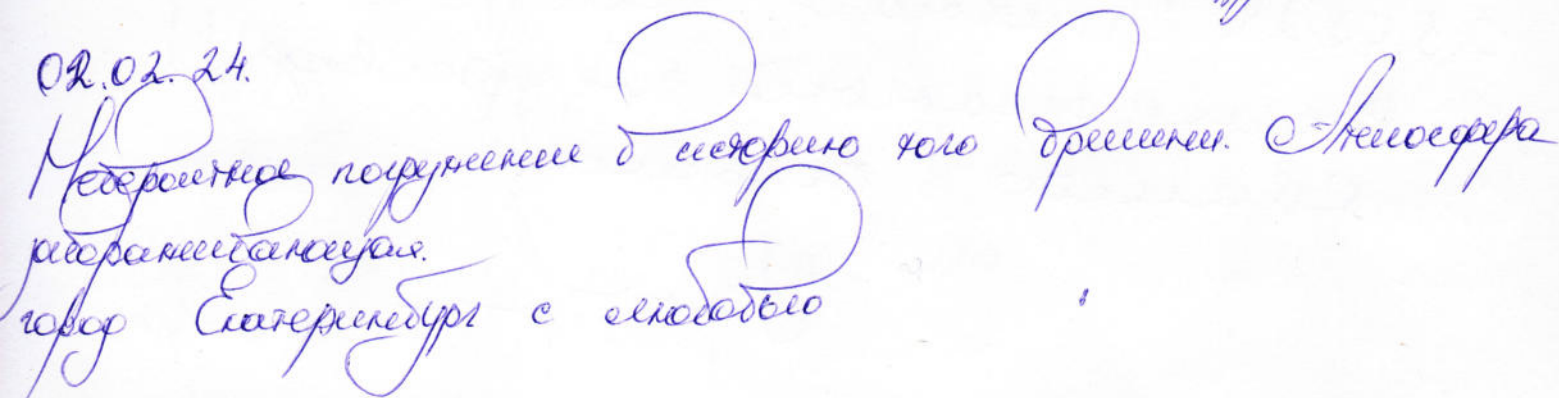 02.02.24.
Невероятное погружение в историю того времени. Атмосфера
завораживающая.
город Екатеринбург с любовью